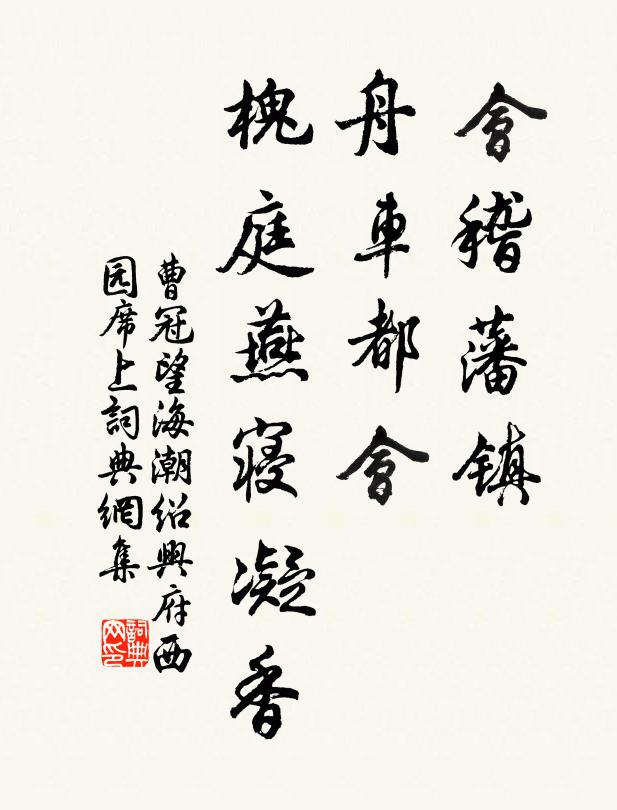 會稽藩鎮
舟車都會
槐庭燕寢凝香
曹冠望海潮紹興府西
园席上詞典網集
詞典
网印